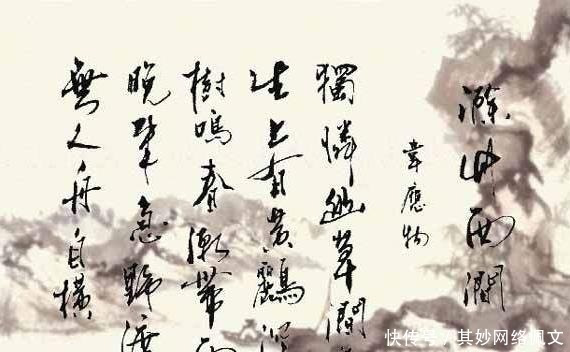 滁州西澗
韋應物
獨憐幽草澗
生上有黃鸝深
樹鳴春潮帶雨
晚來急野渡
無人舟自橫
快传号/其妙网络佩文